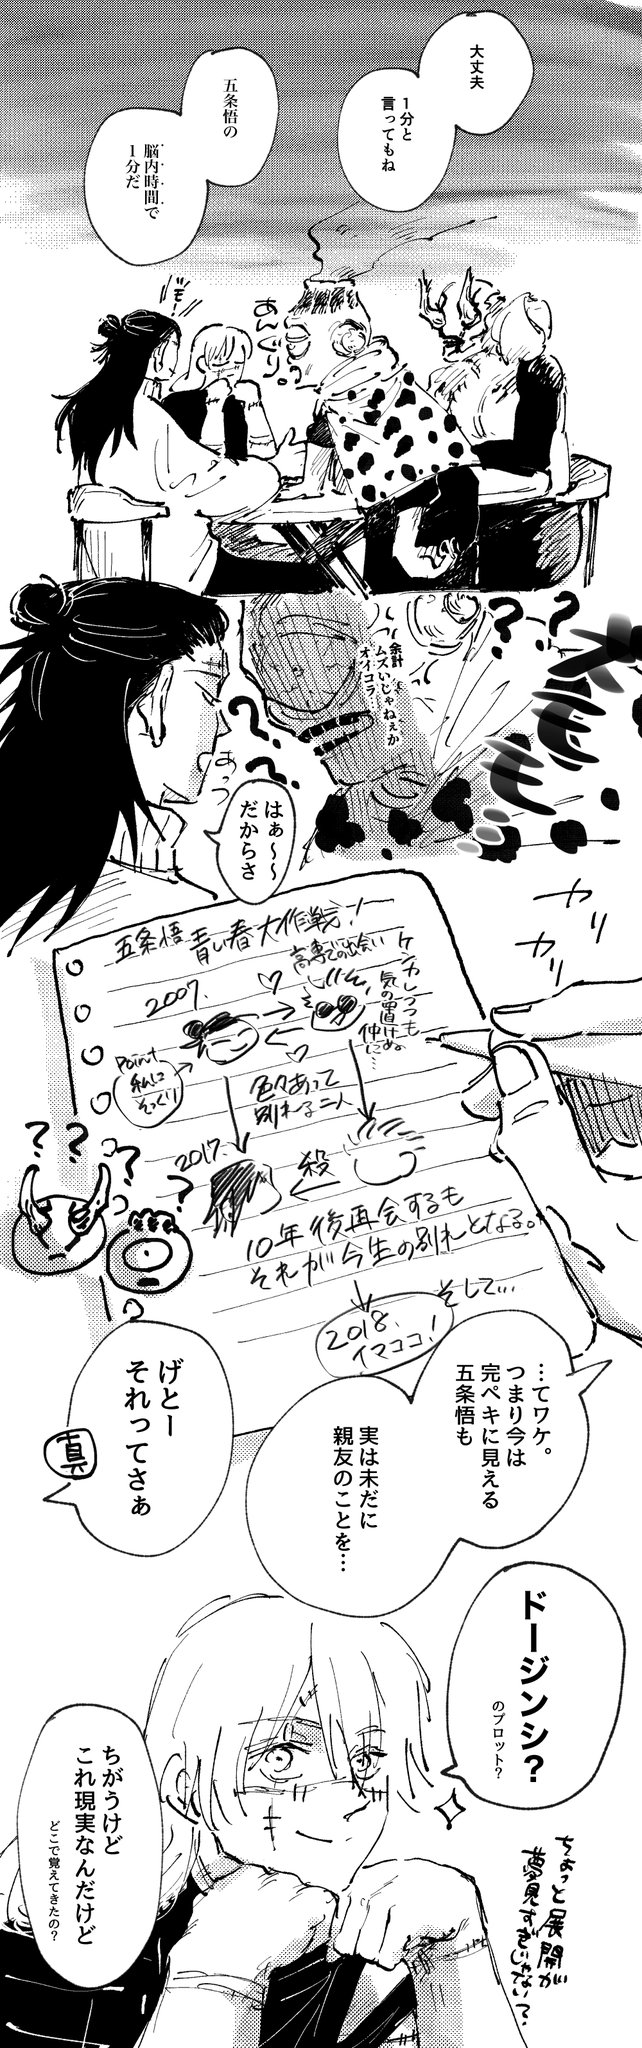 大丈夫
1分と
言ってもね
五条悟の
脳内時間で
1分だ
あんぐり
余計
ムズいじゃねぇか
オイコラ
?
?
?
?
あっつ
はぁ〜〜
だからさ
カリ
カリ
五条悟青い春大作戦!
2007.
高専での出会い
ケンカしつつも
気の置けぬ
仲に…
Point
私に
そっくり
色々あって
別れる二人
2017.
殺
10年後再会するも
それが今生の別れとなる。
そして…
2018.
イマココ!
???
???
…てワケ。
つまり今は
完ペキに見える
五条悟も
実は未だに
親友のことを…
げとー
それってさぁ
真
ドージンシ?
のプロット?
ちがうけど
これ現実なんだけど
どこで覚えてきたの?
ちょっと展開が
夢見すぎじゃない?